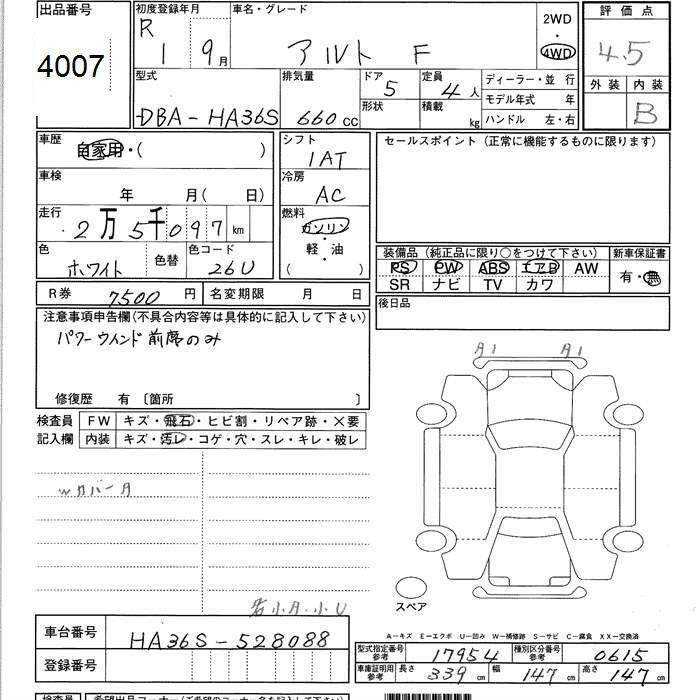 出品番号
4007
初度登録年月
R 1 9月
車名・グレード
アルト F
2WD
・
4WD
評価点
4.5
外装 内装
B
型式
DBA-HA36S
排気量
660cc
ドア
5
形状
定員
4人
積載
kg
ディーラー・並行
モデル年式 年
ハンドル 左・右
車歴
自家用・( )
車検
年 月( 日)
走行
2万5千097km
色
ホワイト
色替
色コード
26U
シフト
IAT
冷房
AC
燃料
ガソリン
軽・油
( )
セールスポイント(正常に機能するものに限ります)
装備品(純正品に限り○をつけて下さい)
PS PW ABS エアB AW
SR ナビ TV カワ
新車保証書
有・無
後日品
R券 7500円
名変期限 月 日
注意事項申告欄(不具合内容等は具体的に記入して下さい)
パワーウインド前席のみ
修復歴 有 〔箇所 〕
検査員
記入欄
FW キズ・飛石・ヒビ割・リペア跡・×要
内装 キズ・汚レ・コゲ・穴・スレ・キレ・破レ
WカバーA
若小A・小U
A1 A1
スペア
A-キズ E-エクボ U-凹み W-補修跡 S-サビ C-腐食 XX-交換済
車台番号
HA36S-528088
登録番号
型式指定番号
参考
17954
種別区分番号
参考
0615
車庫証明用
参考
長さ 339cm 幅 147cm 高さ 147cm
検査員
希望出品コーナー(ご希望のコーナー名を記入して下さい)